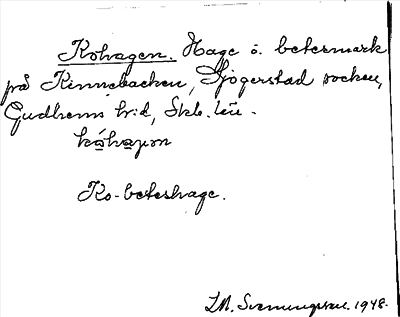 Kohagen. Hage o. betesmark
på Kinnebacken, Sjögerstad socken,
Gudhems hrd, Skb. län.
Ko-beteshage.
L.M. Svenungsson. 1948.